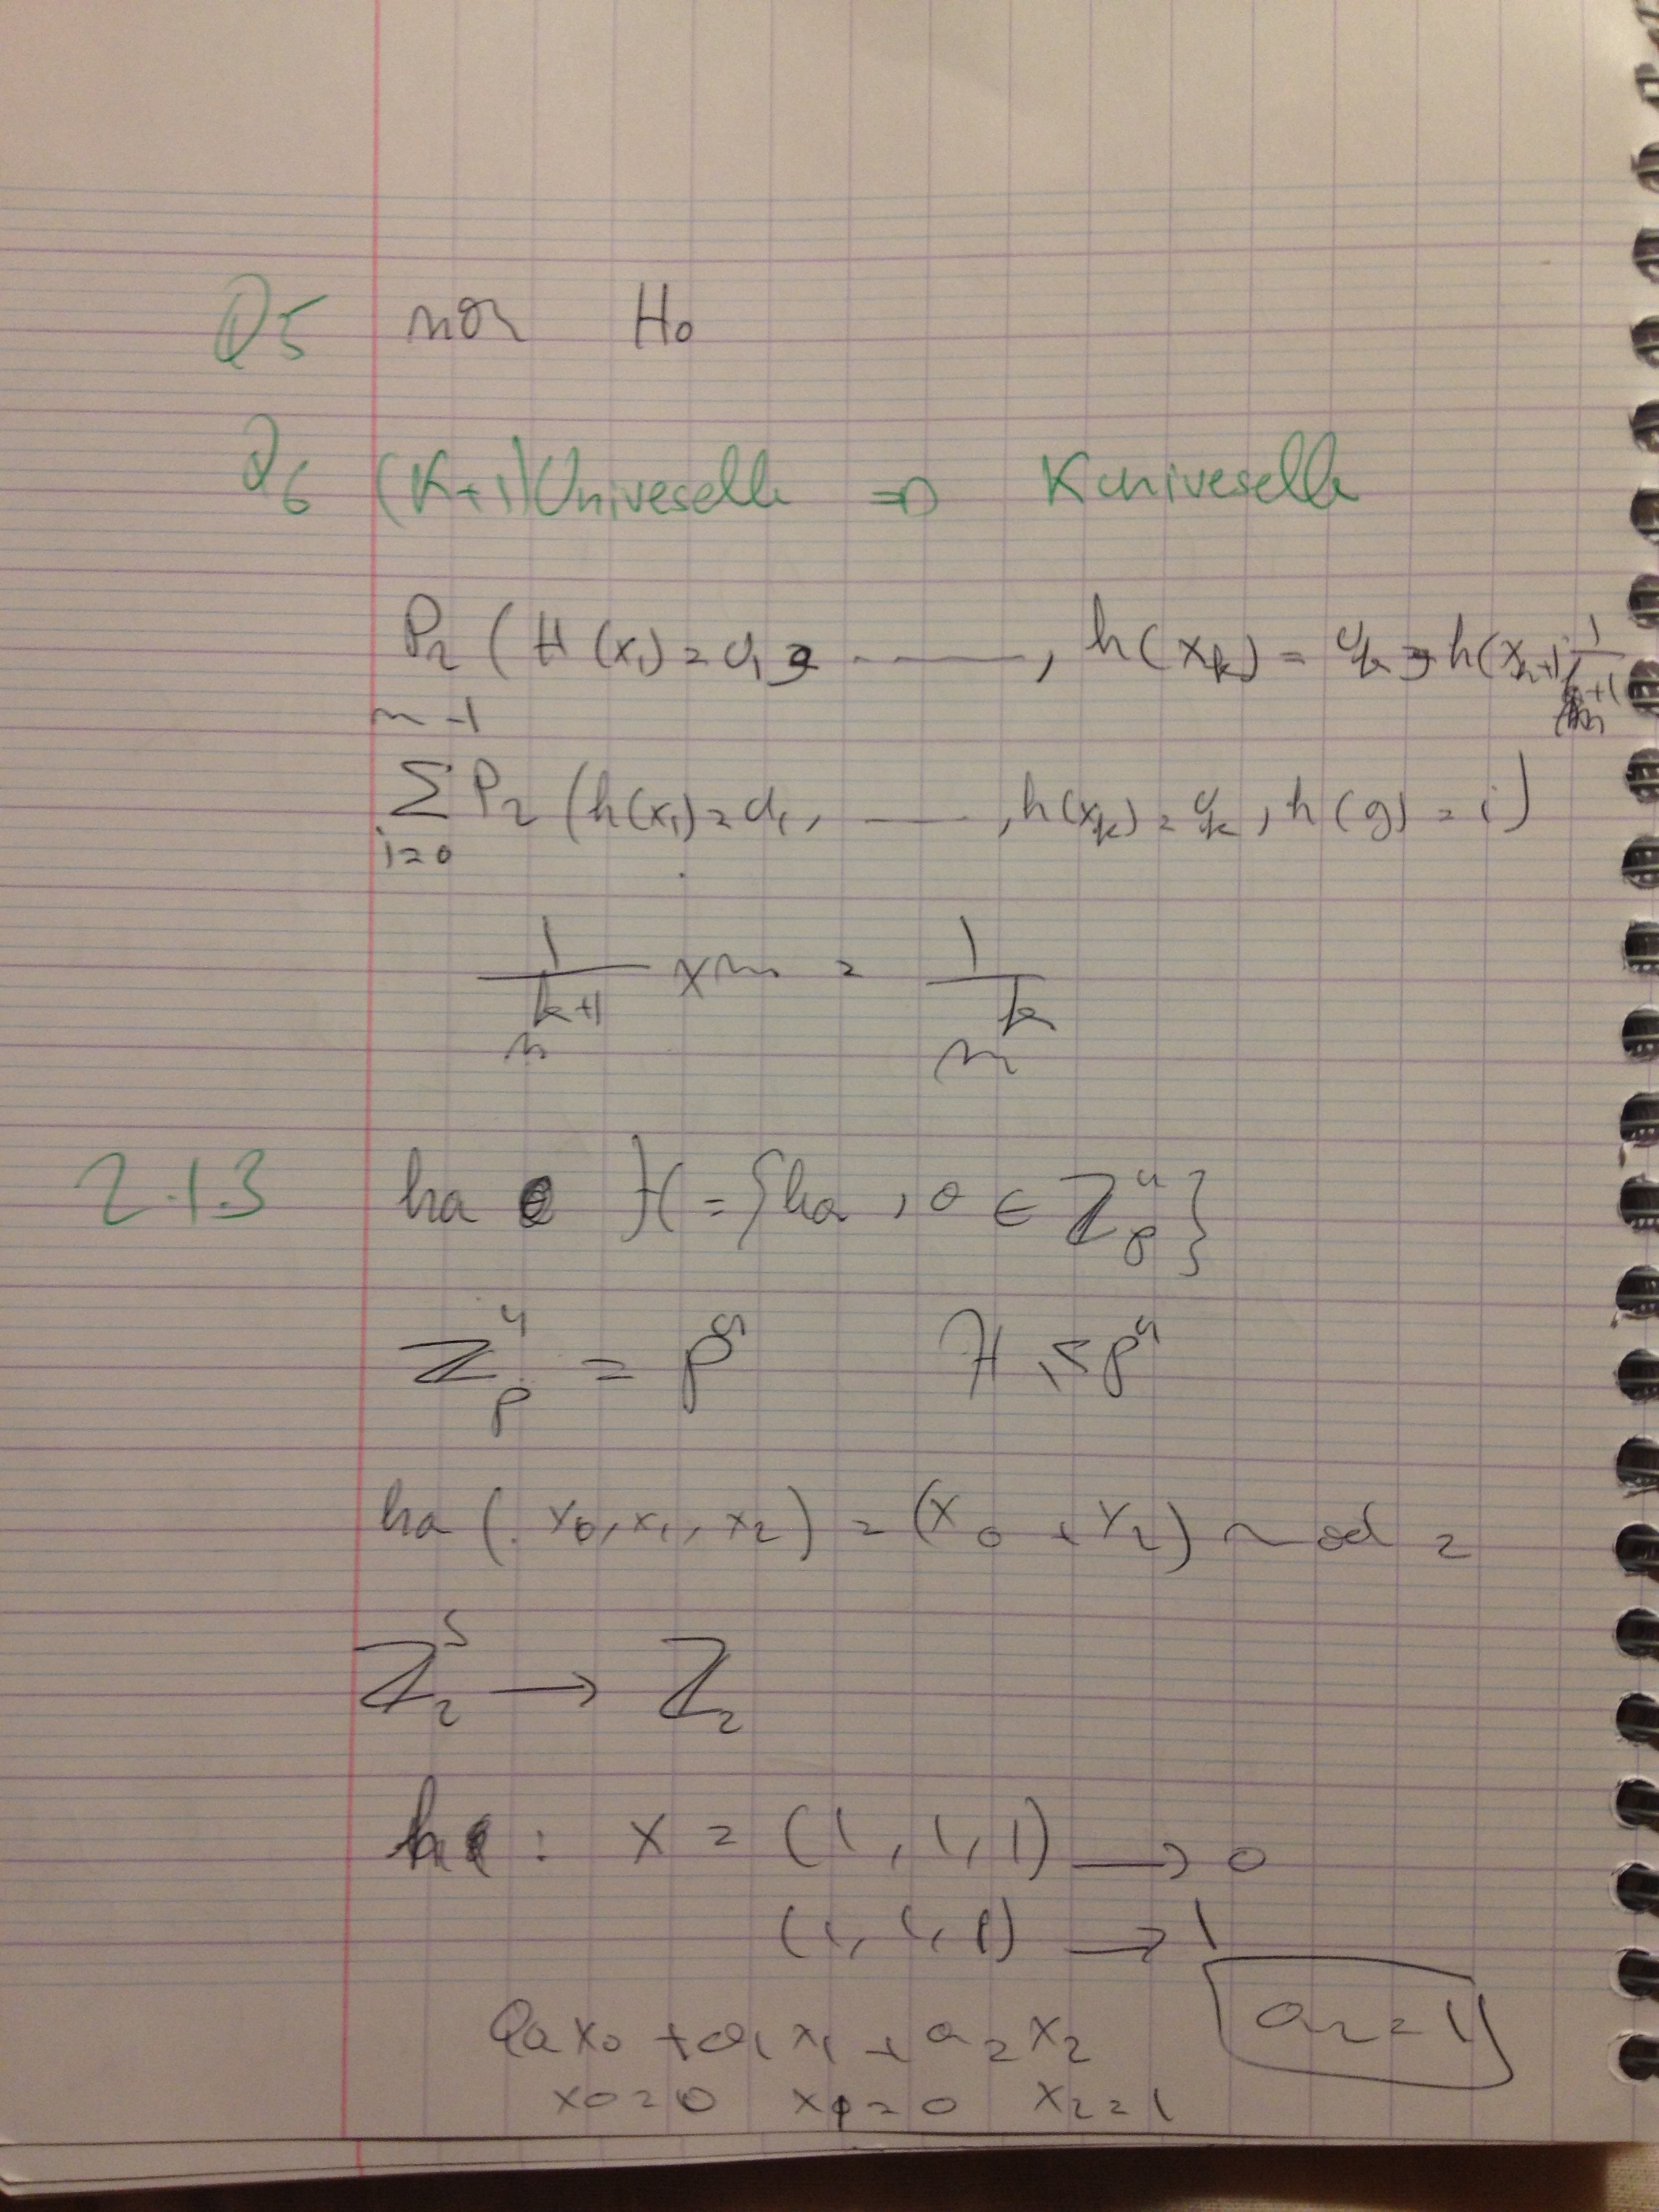 Q5 non H₀
Q6 (K+1)Univeselle ⇒ K univeselle
Pr (H(x₁) = a₁, ———, h(xₖ) = aₖ, h(xₖ₊₁)
n-1
∑ Pr (h(x₁) = a₁, ———, h(xₖ) = aₖ, h(y) = i)
i=0
1/m^(k+1) × m = 1/m^k
2.1.3 ha ∈ H = {ha, a ∈ Z_p^u}
Z_p^u = p^u H ≤ p^u
ha (x₀, x₁, x₂) = (x₀ + x₂) mod 2
Z₂ → Z₂
x = (1, 1, 1) → 0
(1, 1, 1) → 1
a₀x₀ + a₁x₁ + a₂x₂ a₂ = 1
x0 = 0 x1 = 0 x₂ = 1